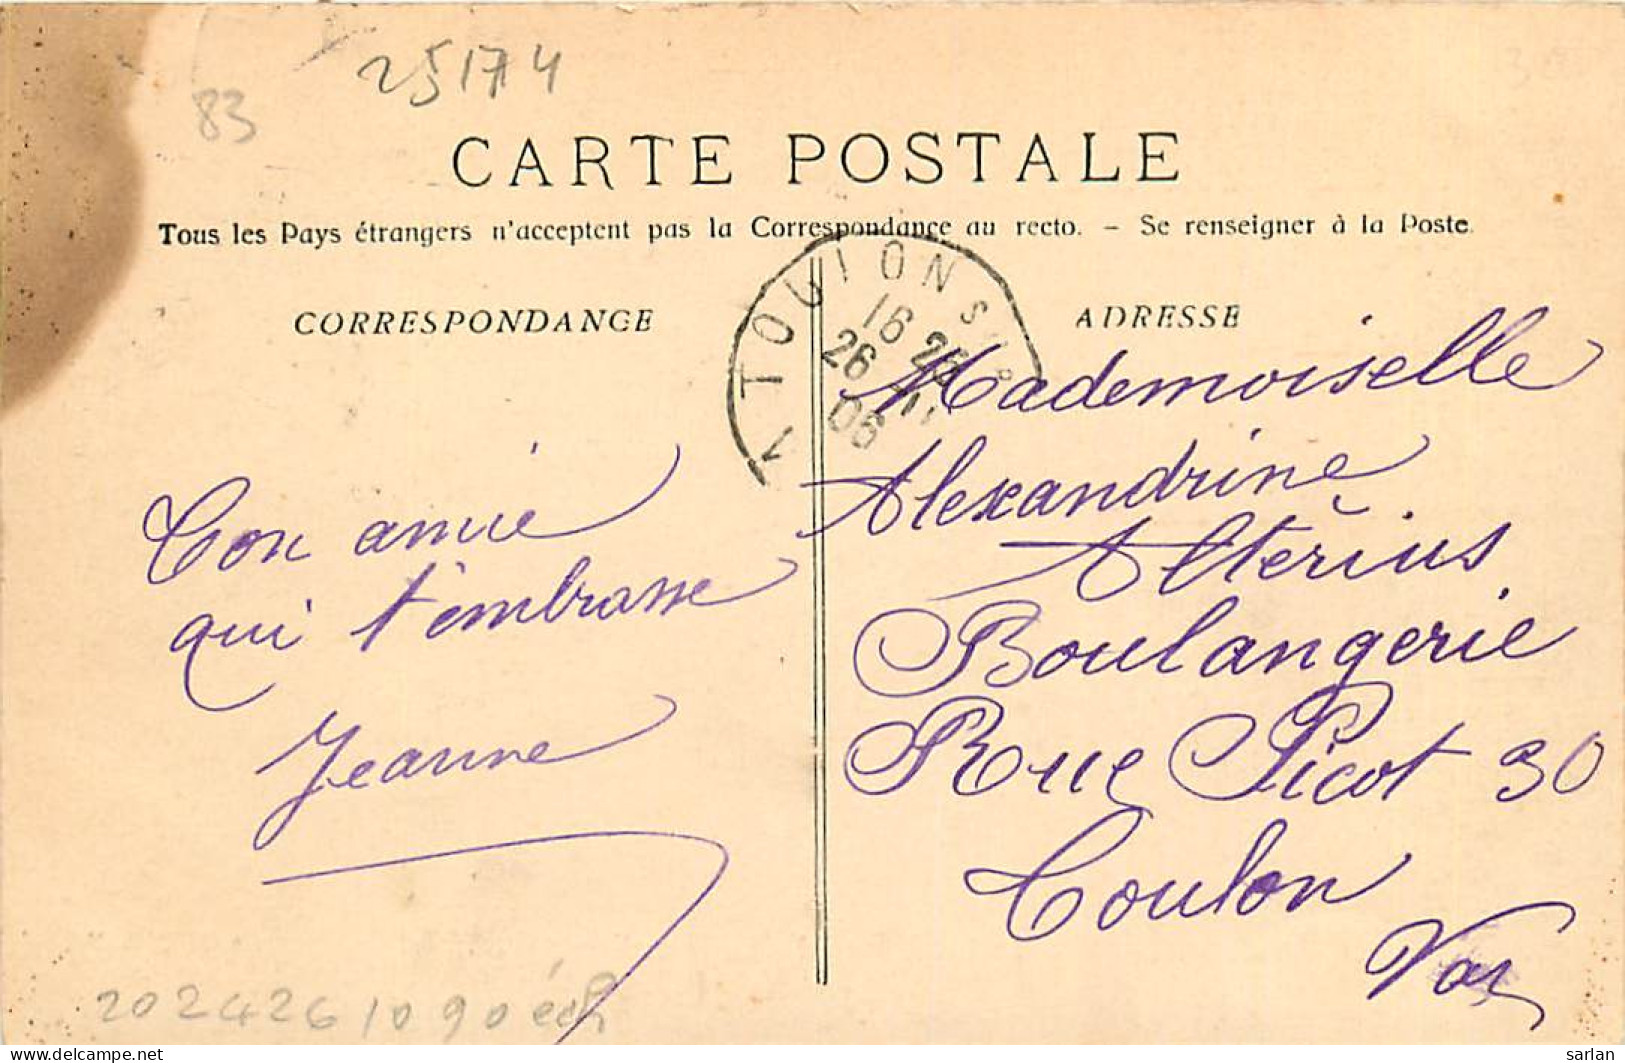 25174
83
CARTE POSTALE
Tous les Pays étrangers n'acceptent pas la Correspondance au recto. - Se renseigner à la Poste.
CORRESPONDANCE
ADRESSE
TOULON S
16 25
26
06
Ton amie
qui t'embrasse
Jeanne
Mademoiselle
Alexandrine
Altèrius
Boulangerie
Rue Picot 30
Toulon
Var
202426 1090
www.delcampe.net
sarlan